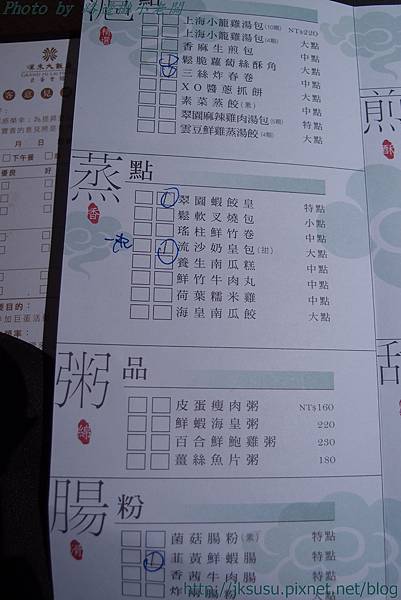 Photo by
點
上海小龍雞湯包(10顆) NT$220
上海小龍雞湯包(4顆) 大點
香麻生煎包 中點
鬆脆蘿蔔絲酥角 大點
三絲炸春卷 中點
XO醬蔥抓餅 中點
素菜蒸餃(素) 中點
翠園麻辣雞肉湯包(5顆) 特點
雲豆鮮雞蒸湯餃(4顆) 大點
蒸點
香
翠園蝦餃皇 特點
鬆軟叉燒包 小點
瑤柱鮮竹卷 中點
流沙奶皇包(甜) 大點
養生南瓜糕 中點
鮮竹牛肉丸 中點
荷葉糯米雞 中點
海皇南瓜餃 大點
粥品
綿
皮蛋瘦肉粥 NT$160
鮮蝦海皇粥 220
百合鮮鮑雞粥 230
薑絲魚片粥 180
腸粉
菌菇腸粉(素) 特點
韮黃鮮蝦腸 特點
香茜牛肉腸 特點
特點
煎
酥
甜
月 日
下午茶
優良 好
http://jksusu.pixnet.net/blog